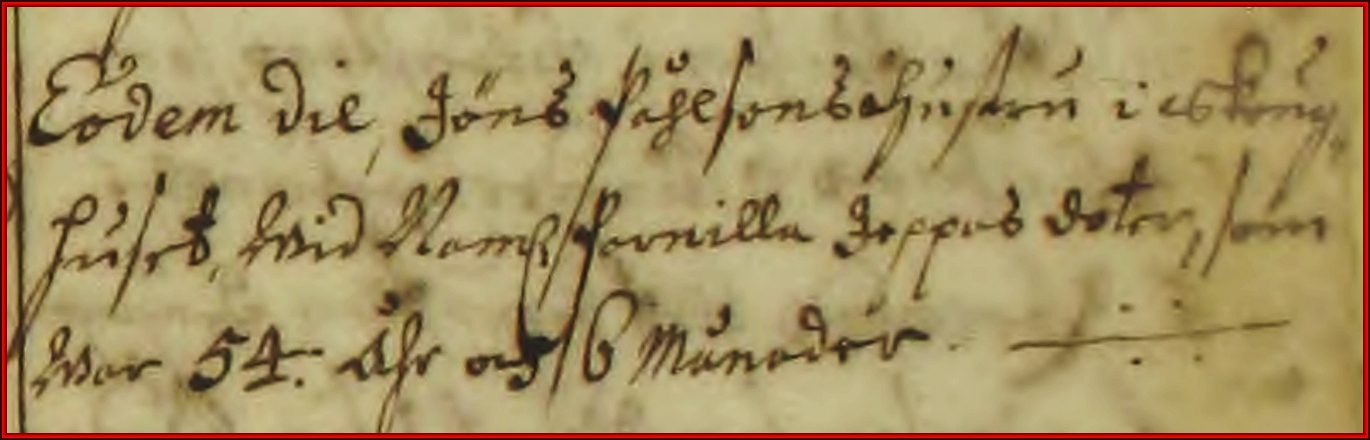 Eodem die, Jöns Påhlsons Hustru i
huset, wid Nampn Pernilla Jeppas doter, som
war 54. Åhr och 6 Månader.